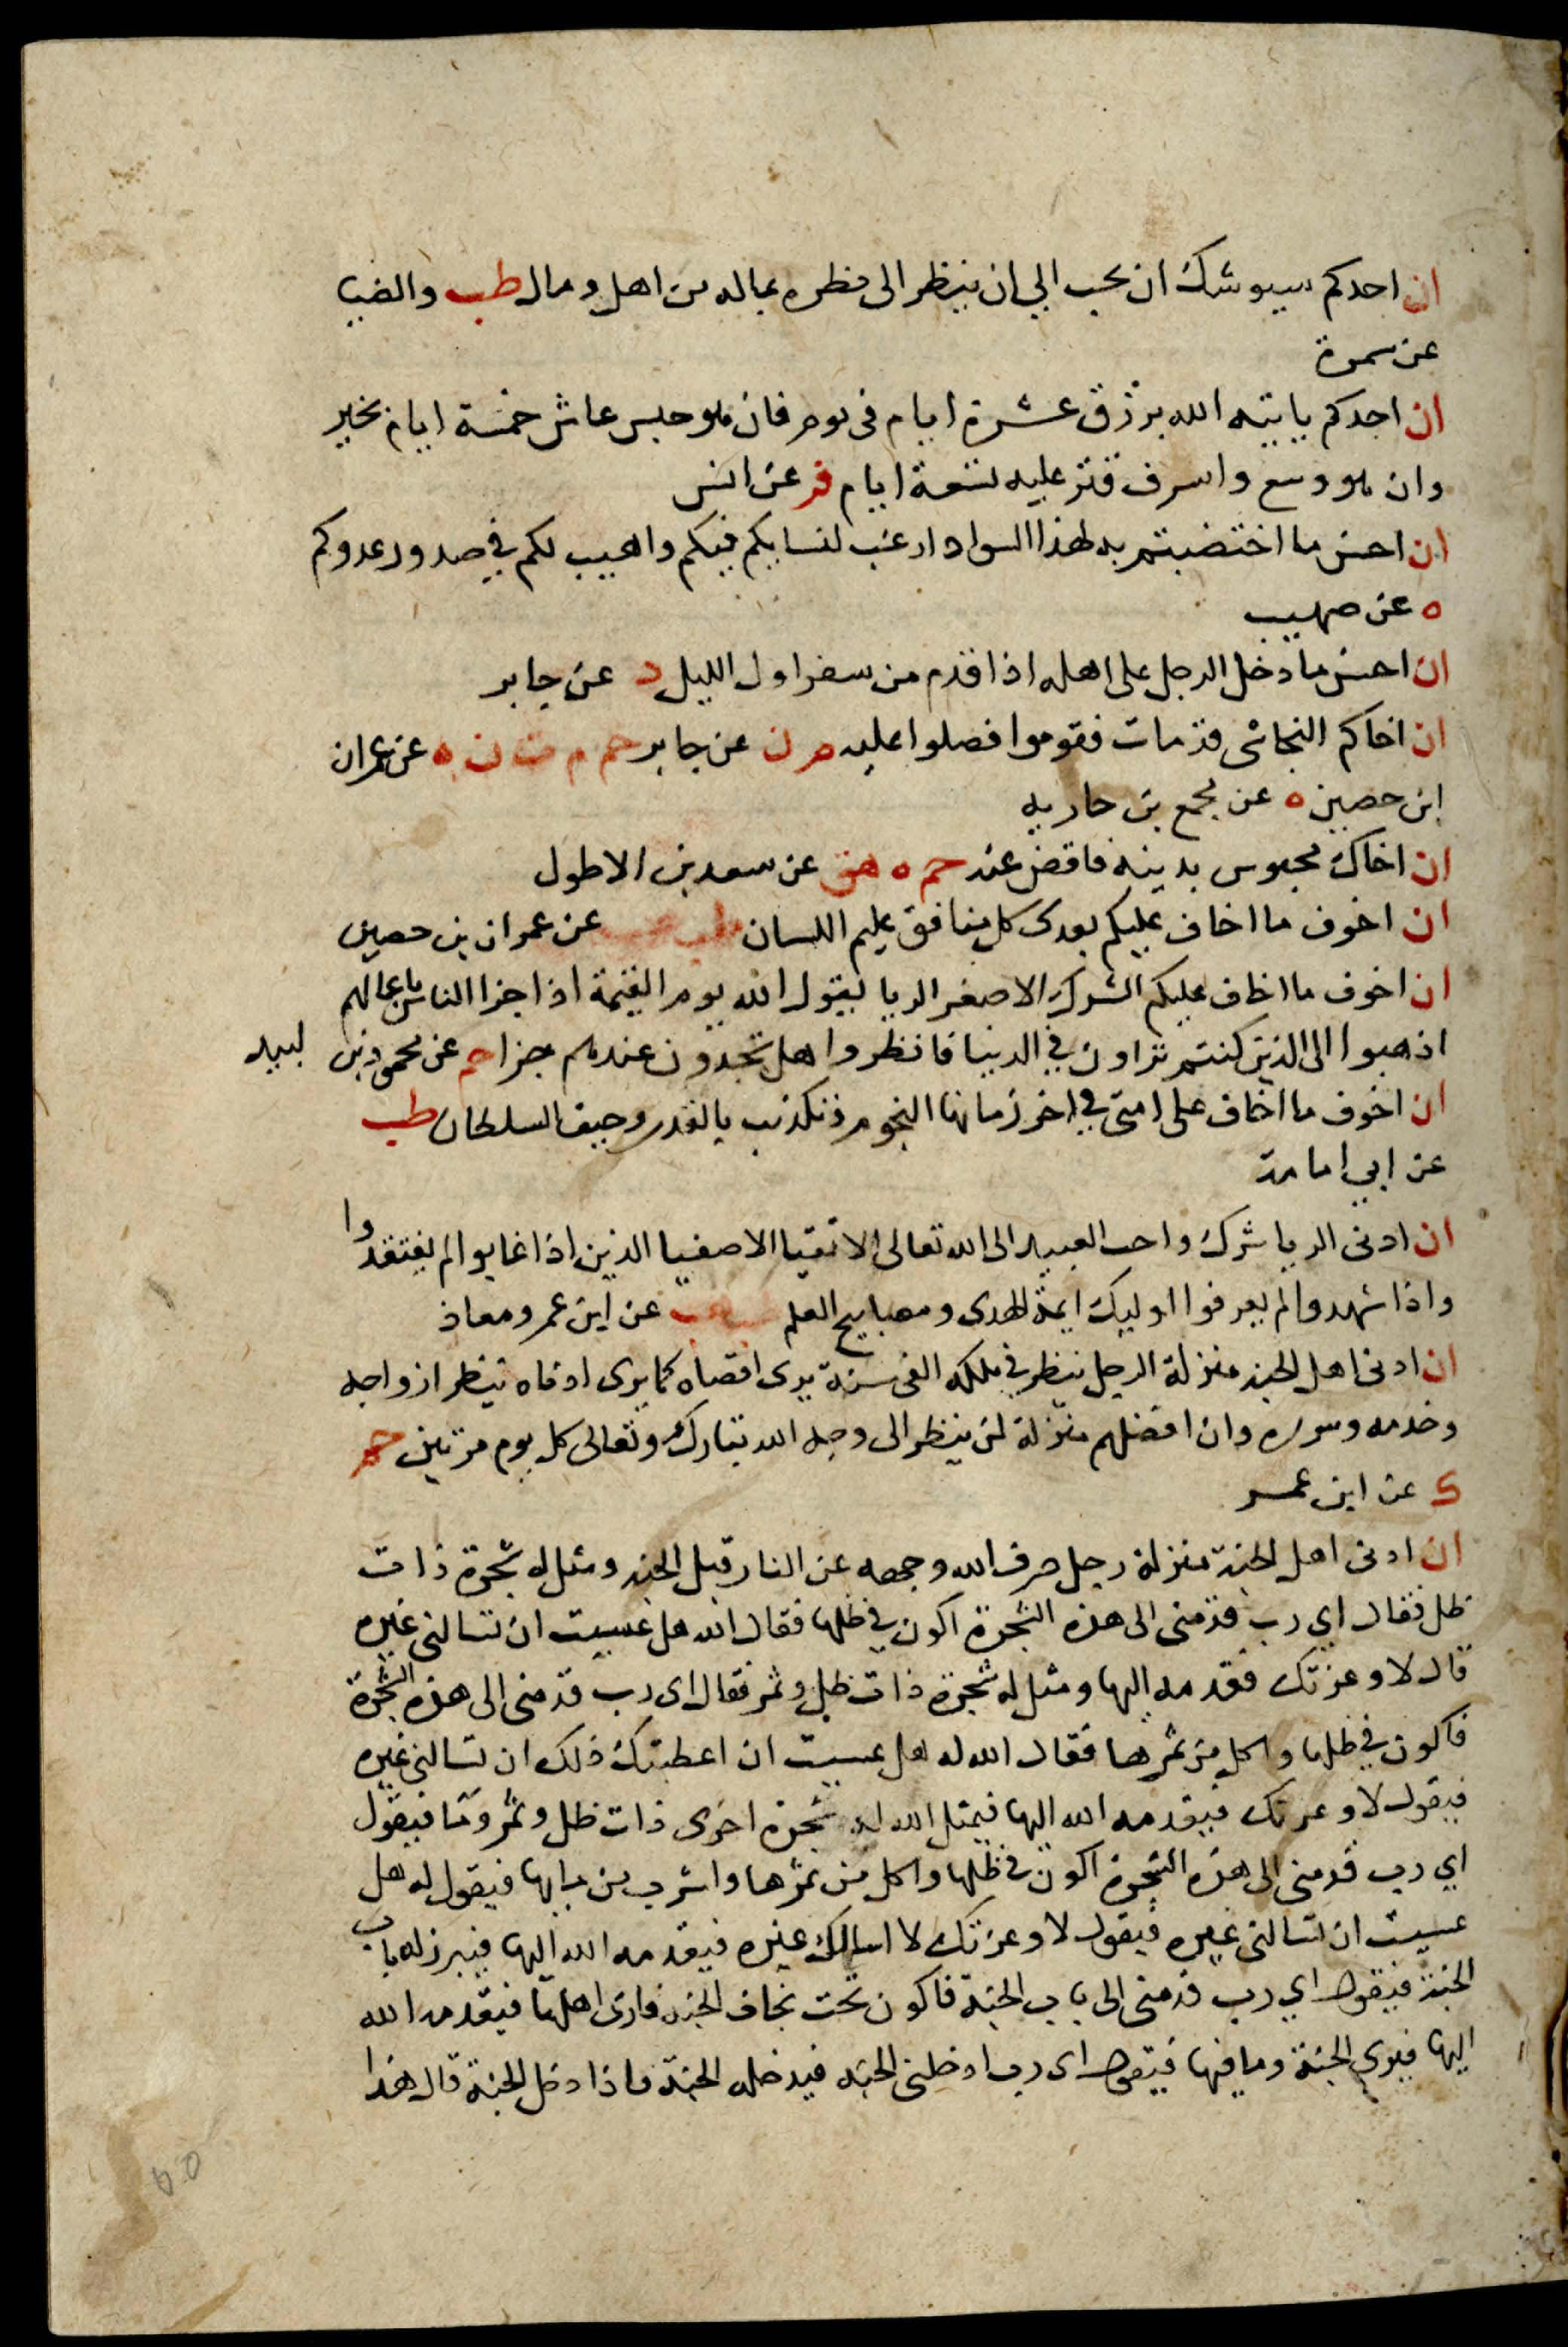 ان احدكم سيوشك ان يحب الي ان ينظر الى نظره بماله من اهل ومال طب والضيا
عن سمرة
ان احدكم ياتيه الله برزق عشرة ايام في يوم فان هو حبس عاش خمسة ايام بخير
وان هو وسع واسرف قتر عليه تسعة ايام فر عن انس
ان احسن ما اختضبتم به لهذا السواد ارغب لنسايكم فيكم واهيب لكم في صدور عدوكم
ه عن صهيب
ان احسن ما دخل الرجل على اهله اذا قدم من سفر اول الليل د عن جابر
ان اخاكم النجاشى قد مات فقوموا فصلوا عليه م ن عن جابر حم م ت ن ه عن عمران
ابن حصين ه عن مجمع بن حاريه
ان اخاك محبوس بدينه فاقض عنه حم ه هق عن سعد بن الاطول
ان اخوف ما اخاف عليكم بعدى كل منافق عليم اللسان طب هب عن عمران بن حصين
ان اخوف ما اخاف عليكم الشرك الاصغر الريا يقول الله يوم القيمة اذا جزا الناس باعمالهم
اذهبوا الى الذين كنتم تراون في الدنيا فانظروا هل تجدون عندهم جزا حم عن محمود بن لبيد
ان اخوف ما اخاف على امتى في اخر زمانها النجوم وتكذيب بالقدر وحيف السلطان طب
عن ابي امامة
ان ادنى الريا شرك واحب العبيد الى الله تعالى الاتقيا الاصفيا الذين اذا غابوا لم يفتقدوا
واذا شهدوا لم يعرفوا اوليك ايمة الهدى ومصابيح العلم طب ك عن ابن عمر ومعاذ
ان ادنى اهل الجنة منزلة الرجل ينظر في ملكه الفى سنة يرى اقصاه كما يرى ادناه ينظر ازواجه
وخدمه وسرره وان افضلهم منزلة لمن ينظر الى وجه الله تبارك وتعالى كل يوم مرتين حم
ك عن ابن عمر
ان ادنى اهل الجنة منزلة رجل صرف الله وجهه عن النار قبل الجنة ومثل له شجرة ذات
ظل فقال اي رب قدمنى الى هذه الشجرة اكون في ظلها فقال الله هل عسيت ان تسالنى غيره
قال لا وعزتك فقدمه اليها ومثل له شجرة ذات ظل وثمر فقال اى رب قدمنى الى هذه الشجرة
فاكون في ظلها واكل من ثمرها فقال الله له هل عسيت ان اعطيتك ذلك ان تسالنى غيره
فيقول لا وعزتك فيقدمه الله اليها فيمثل الله له شجرة اخرى ذات ظل وثمر وما فيقول
اي رب قدمنى الى هذه الشجرة اكون في ظلها واكل من ثمرها واشرب من مايها فيقول له هل
عسيت ان تسالنى غيره فيقول لا وعزتك لا اسالك غيره فيقدمه الله اليها فيبرز له باب
الجنة فيقول اي رب قدمنى الى باب الجنة فاكون تحت نجاف الجنة فارى اهلها فيقدمه الله
اليها فيرى الجنة وما فيها فيقول اى رب ادخلنى الجنة فيدخله الجنة فاذا دخل الجنة قال هذا